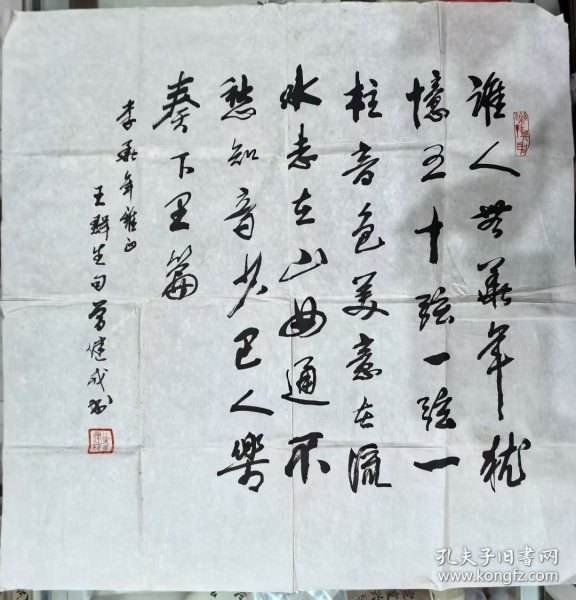 谁人無華年犹
憶五十弦一弦一
柱音色美意在流
水志在山曲通不
愁知音少巴人樂
奏下里篇
李華年雅正
王群生句 曾健成书
孔夫子旧书网
www.kongfz.com